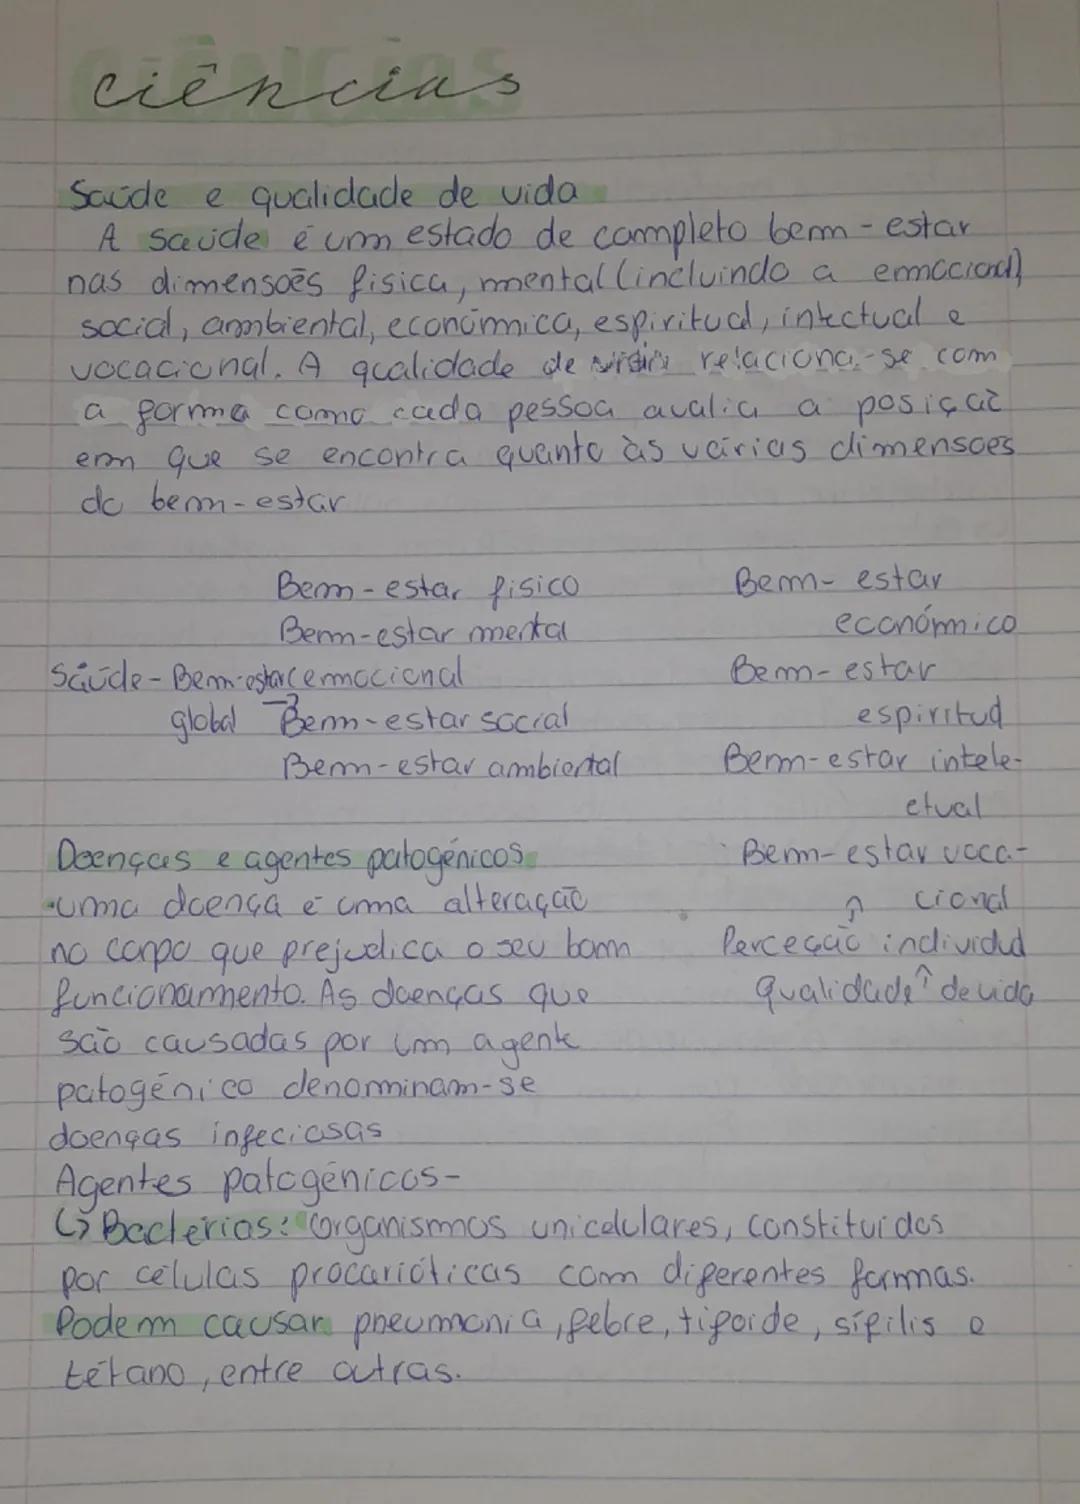 ciências
Saúde e qualidade de vida
A saúde é um estado de completo bem-estar
nas dimensoẽs fisica, mental (incluindo a emocional)
social, ambiental, económica, espiritual, intectual e
vocacional. A qualidade de relaciona-se com
a forma como cada pessoa avalia a posição
em que se encontra quanto às várias dimensoes
do bem-estar
Bem-estar fisico
Bem-estar mental
Saúde - Bem-estar emocional
global → Bem-estar social
Bem-estar ambiental
Bem-estar
económico
Bem-estar
espiritual
Bem-estar intele-
ctual
Bem-estar voca-
cional
↑
Perceção individual
↑
Qualidade de vida
Doenças e agentes patogénicos
•uma doença é uma alteração
no corpo que prejudica o seu bom
funcionamento. As doenças que
são causadas por um agente
patogénico denominam-se
doenças infeciosas
Agentes patogénicos-
↳ Bactérias: organismos unicelulares, constituidos
por células procarióticas com diferentes formas.
Podem causar pneumonia, febre, tifoide, sífilis e
tétano, entre outras.